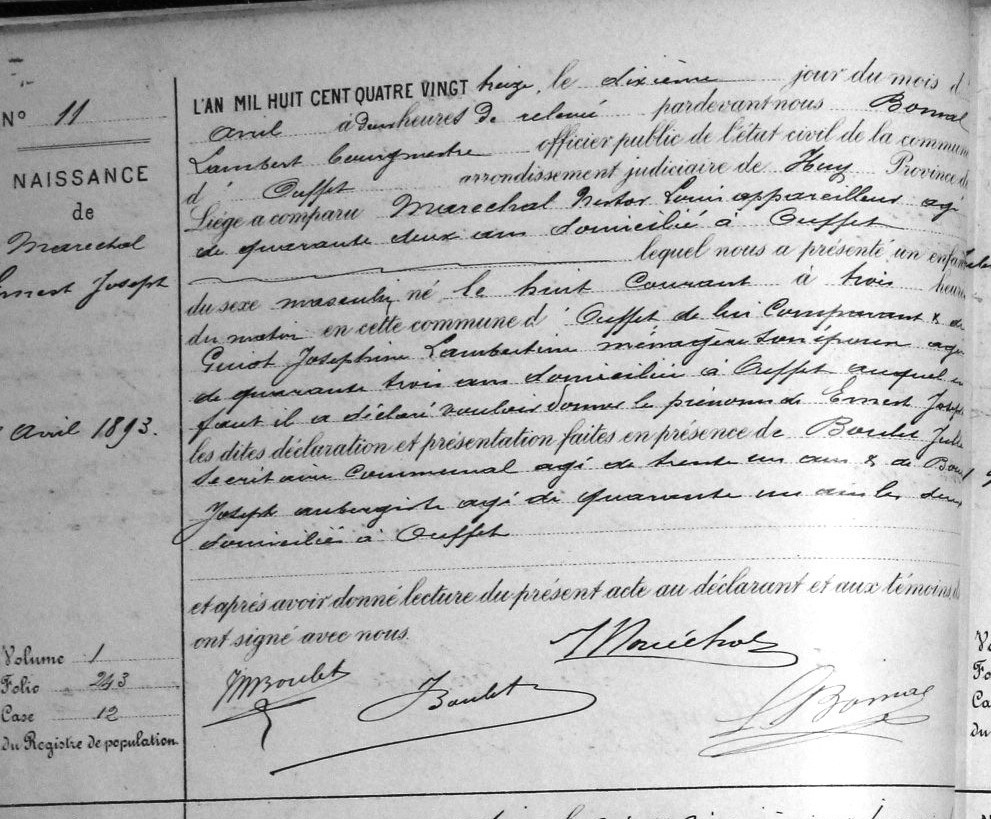 N° 11
NAISSANCE
de
Marechal
Ernest Joseph
Avril 1893.
Volume 1
Folio 243
Case 12
du Registre de population.
L'AN MIL HUIT CENT QUATRE VINGT treize, le dixième jour du mois d'
Avril à deux heures de relevé pardevant nous Bonmal
Lambert bourgmestre officier public de l'état civil de la commune
d' Ouffet arrondissement judiciaire de Huy Province de
Liège a comparu Marechal Nestor Louis appareilleur agé
de quarante deux ans domicilié à Ouffet
lequel nous a présenté un enfant
du sexe masculin né le huit courant à trois heures
du matin en cette commune d' Ouffet de lui Comparant & de
Guiot Josephine Lambertine ménagère son épouse agée
de quarante trois ans domiciliée à Ouffet auquel en
faut il a déclaré vouloir donner le prénoms de Ernest Joseph
les dites déclaration et présentation faites en présence de Boulet Jules
Secrétaire Communal agé de trente un ans & de Boulet
Joseph aubergiste agé de quarante un ans les deux
domiciliés à Ouffet
et après avoir donné lecture du présent acte au déclarant et aux témoins, ils
ont signé avec nous.
N Maréchal
Boulet
J Boulet
L Bonmal